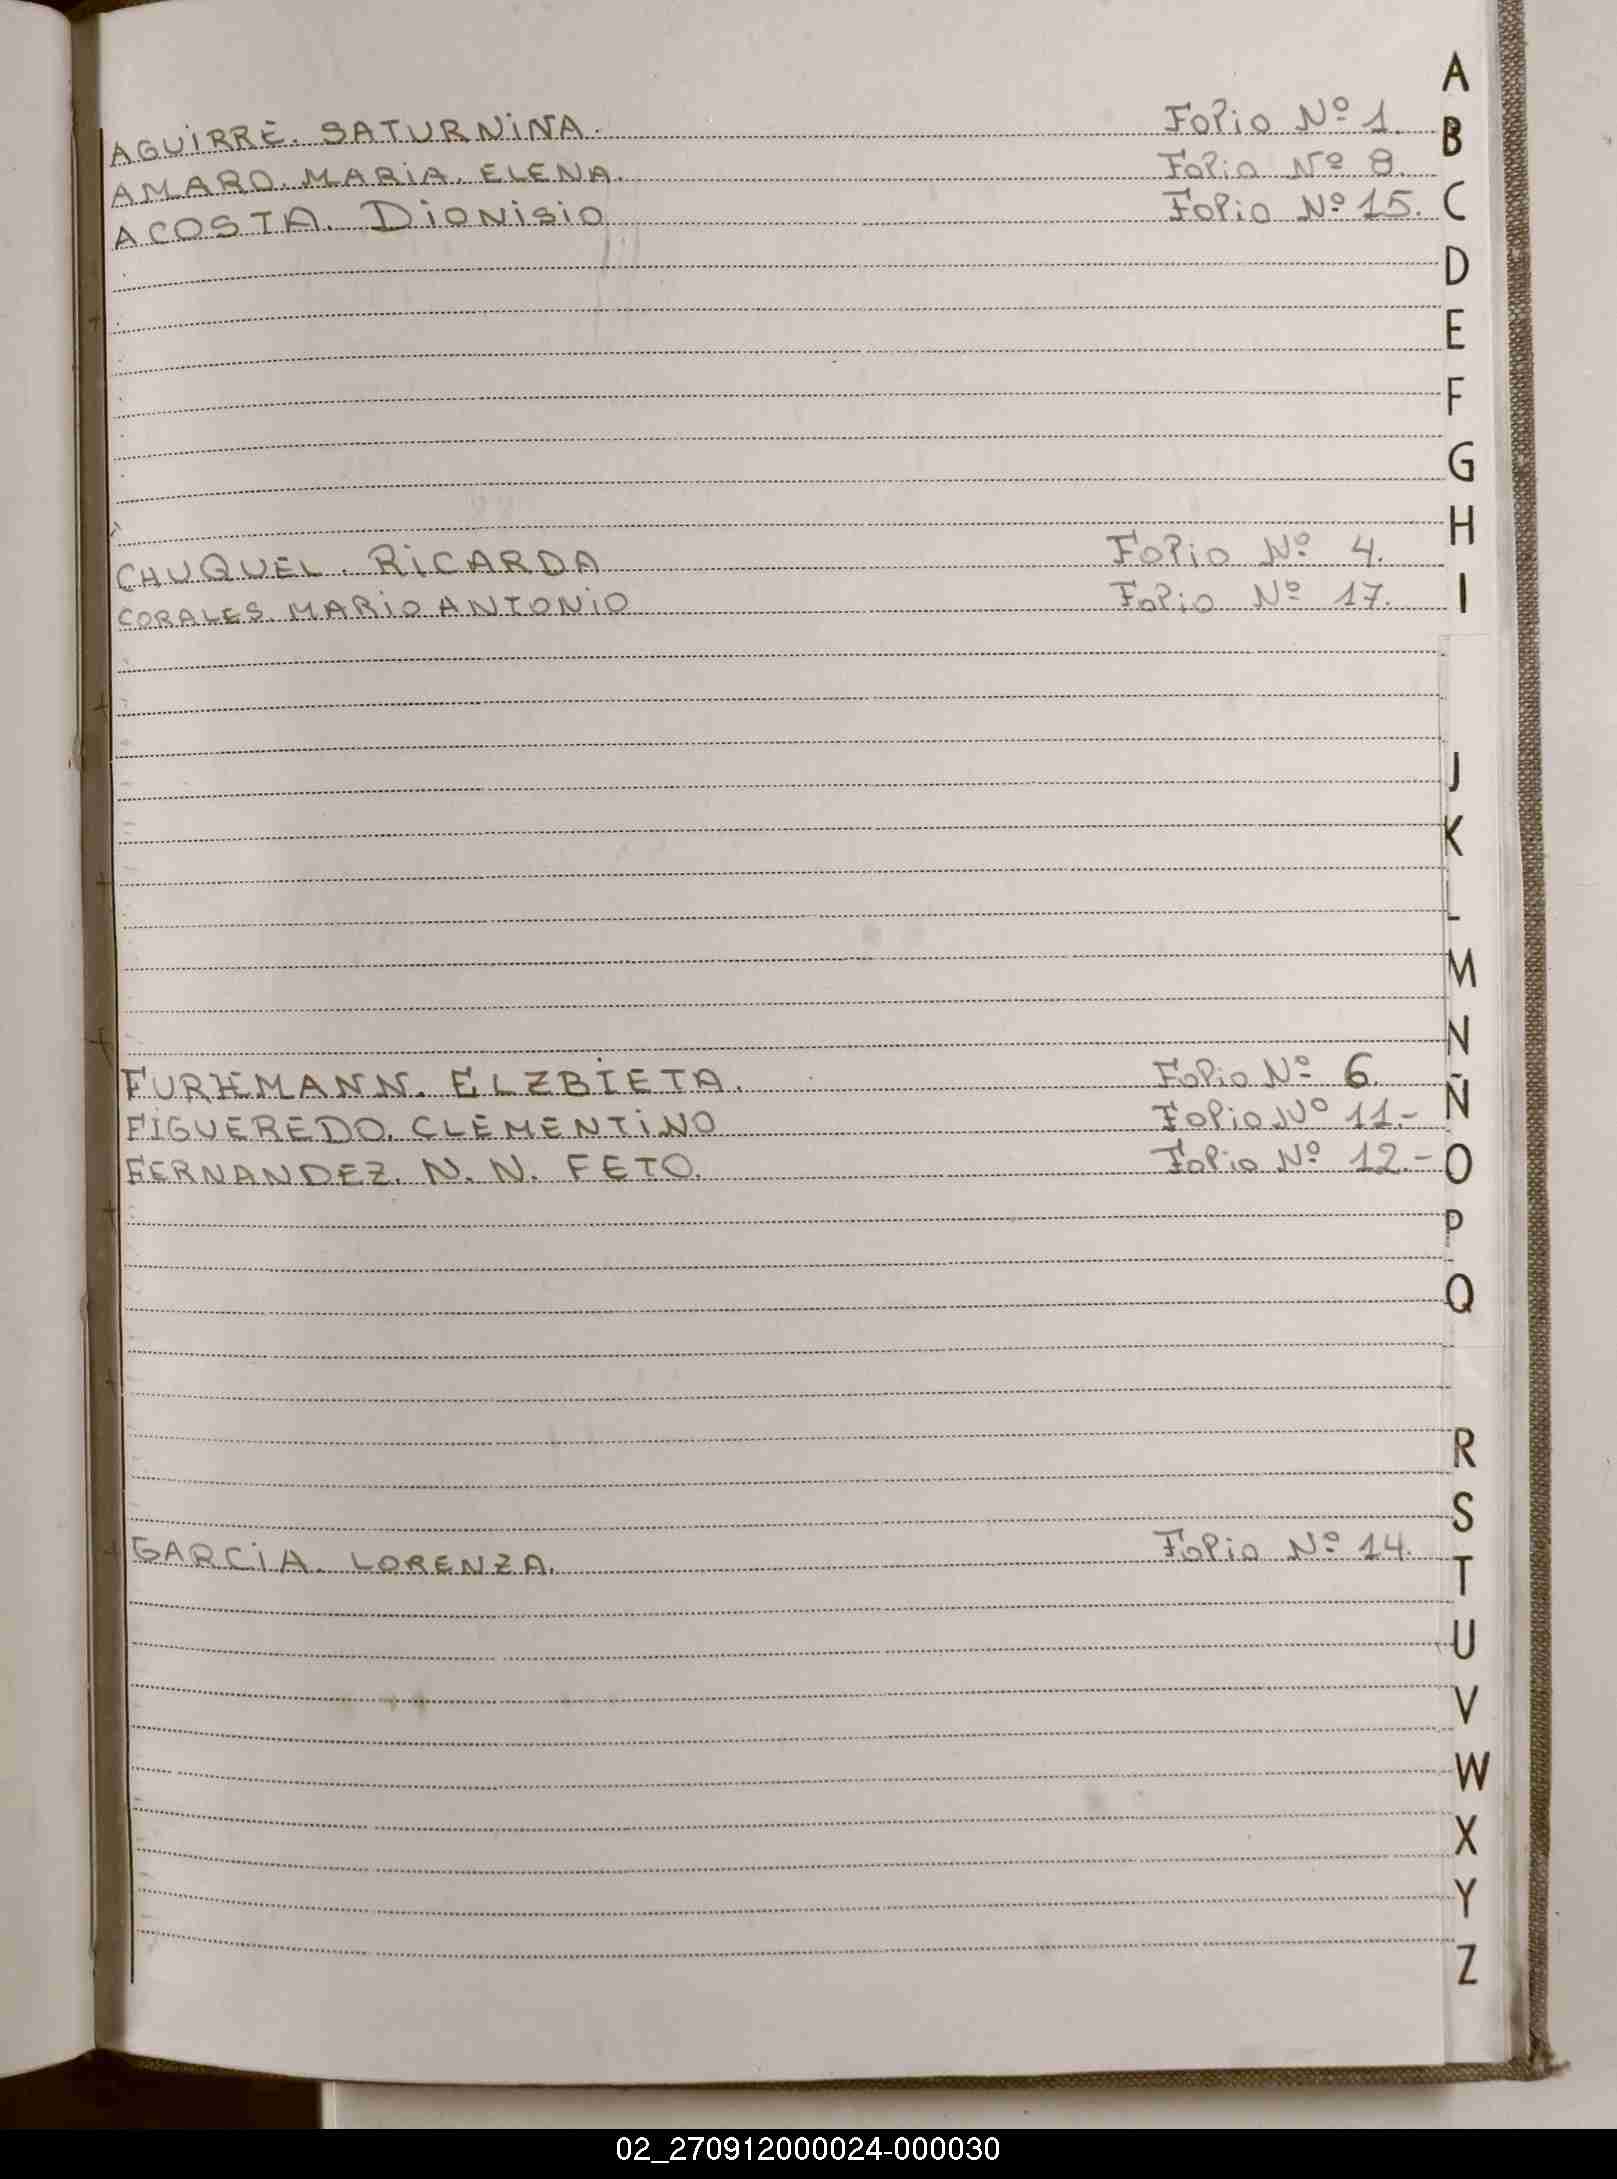 AGUIRRE. SATURNINA. Folio Nº 1.
AMARO. MARIA. ELENA. Folio Nº 8.
ACOSTA. DIONISIO Folio Nº 15.
CHUQUEL. RICARDA Folio Nº 4.
CORALES. MARIO ANTONIO Folio Nº 17.
FURHMANN. ELZBIETA. Folio Nº 6.
FIGUEREDO. CLEMENTINO Folio Nº 11.-
FERNANDEZ. N. N. FETO. Folio Nº 12.-
GARCIA. LORENZA. Folio Nº 14.
A
B
C
D
E
F
G
H
I
J
K
L
M
N
Ñ
O
P
Q
R
S
T
U
V
W
X
Y
Z
02_270912000024-000030